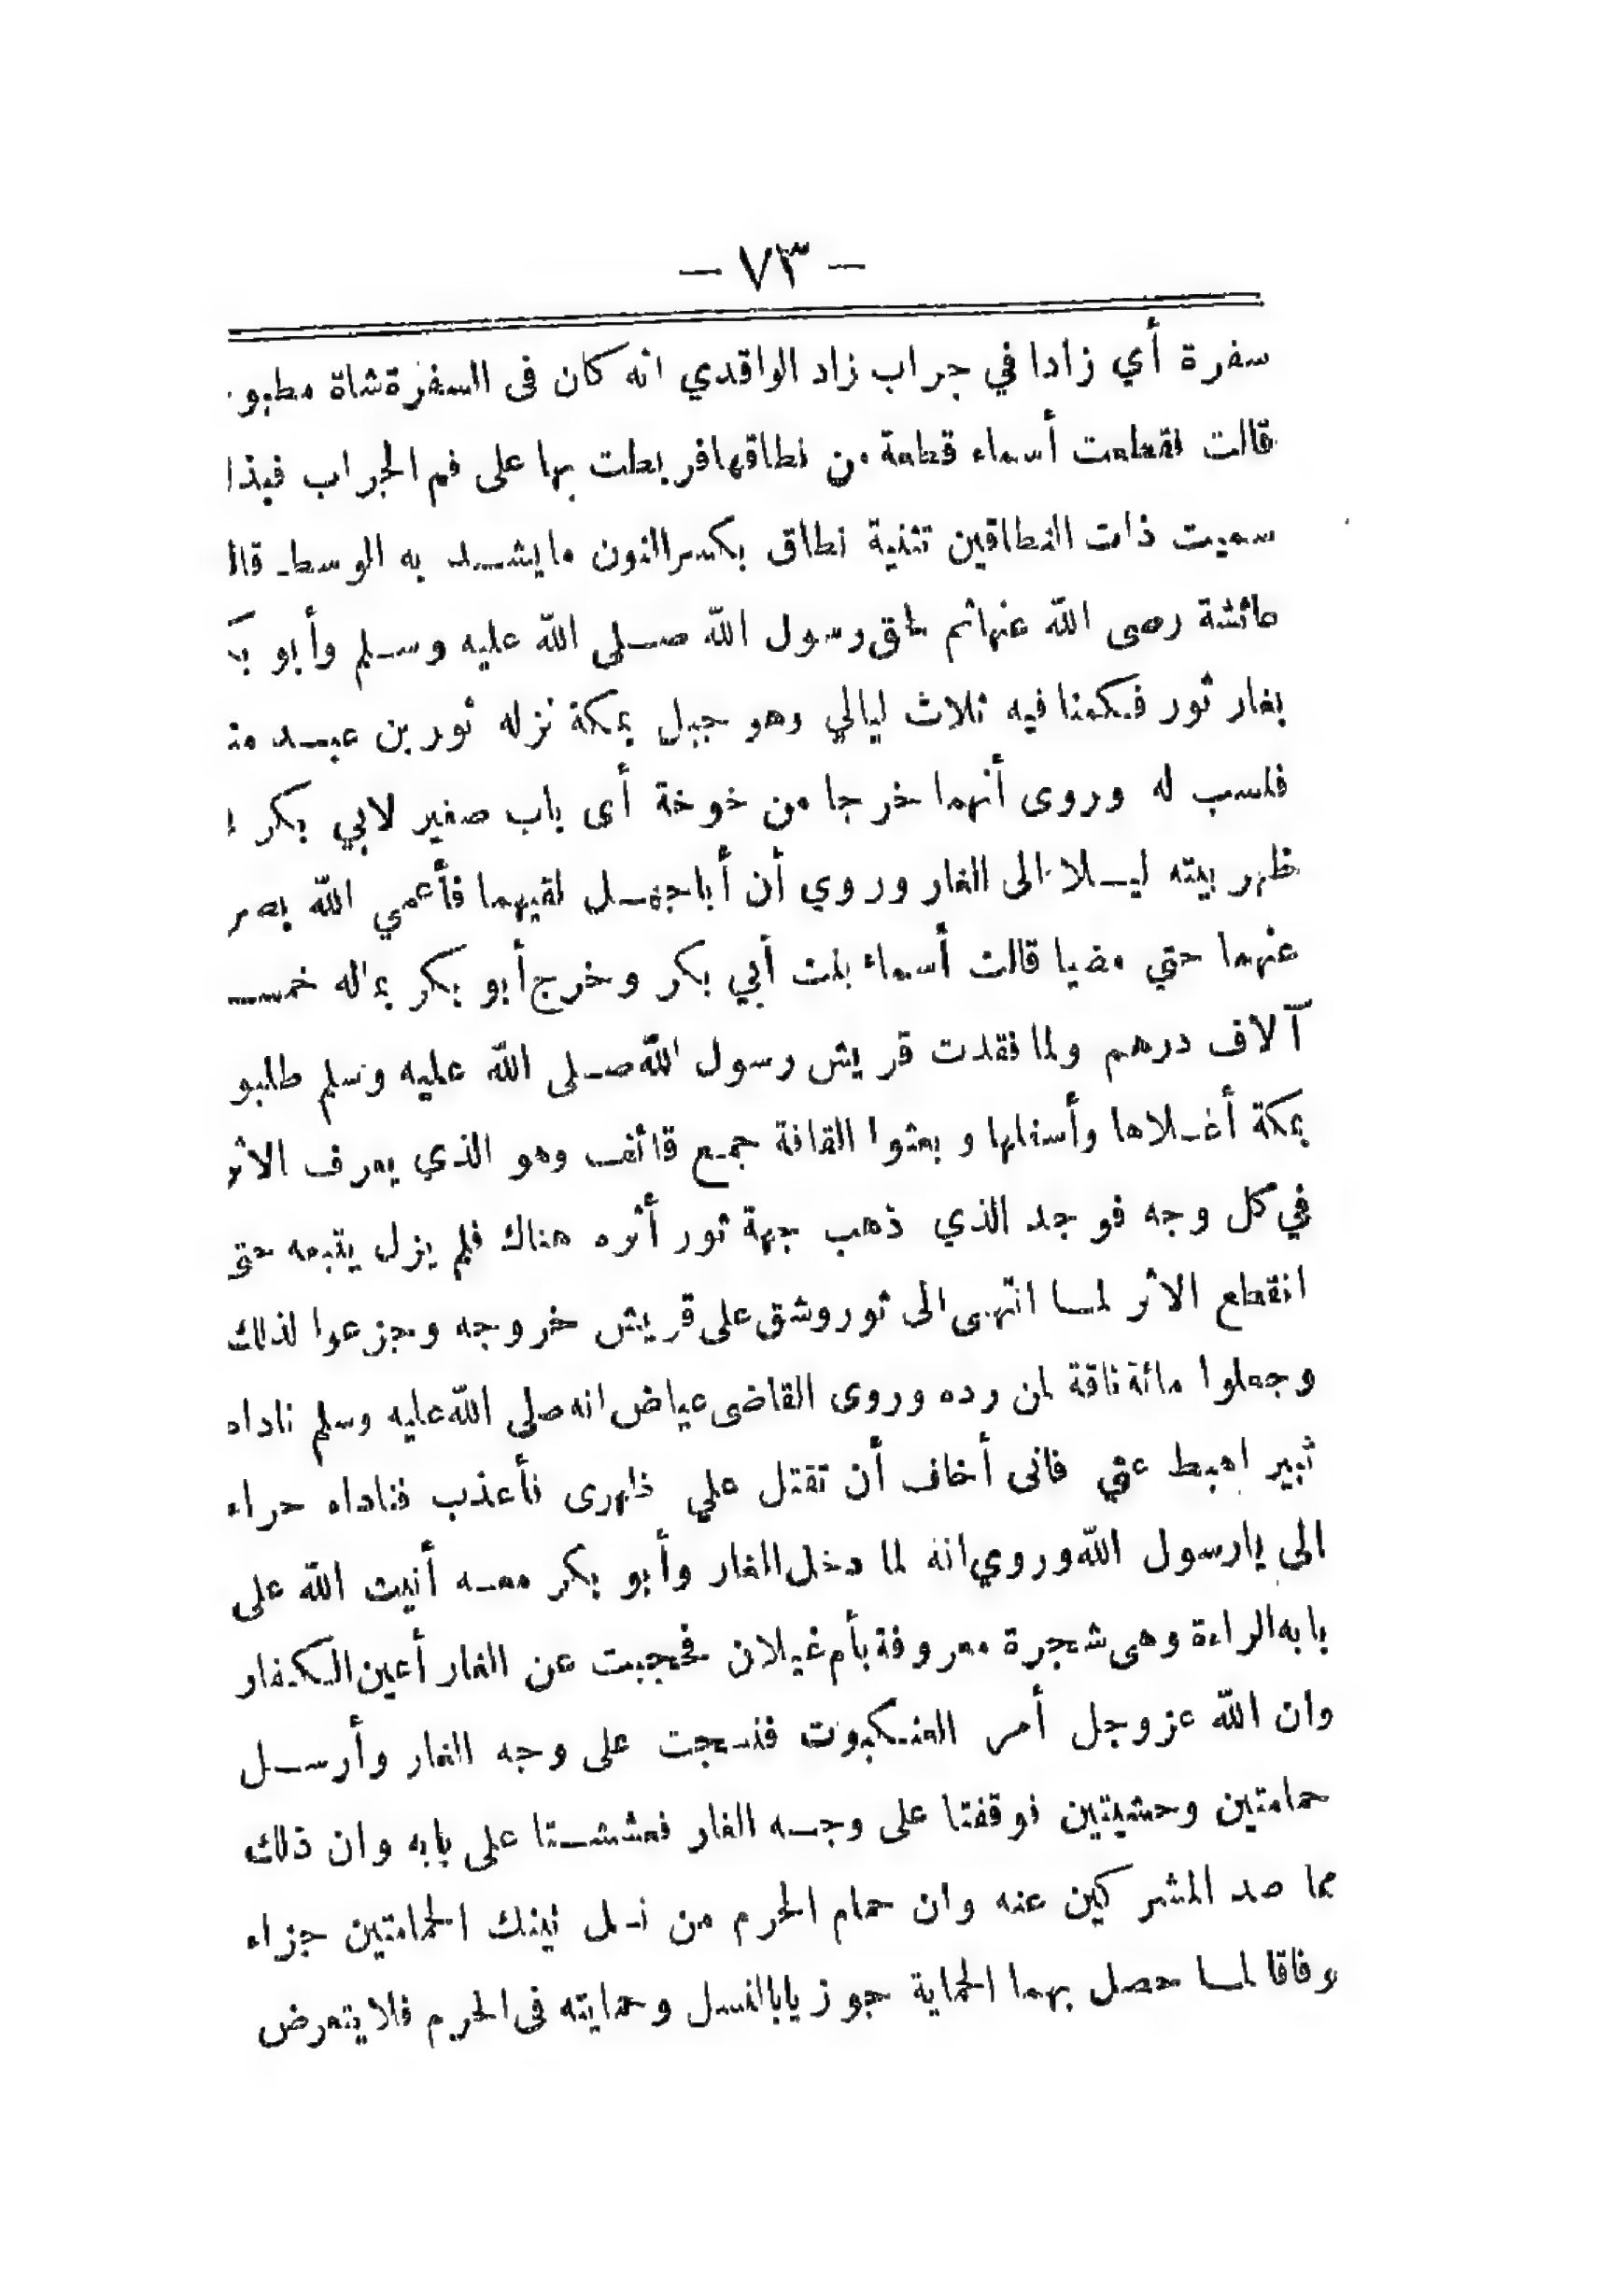 - ٧٣ -
سفرة أي زادا في جراب زاد الواقدي انه كان فى السفرة شاة مطبو
قالت فقطعت أسماء قطعة من نطاقها فربطت بها على فم الجراب فبذا
سميت ذات النطاقين تثنية نطاق بكسر النون ما يشد به الوسط قال
عائشة رضى الله عنها ثم لحق رسول الله صلى الله عليه وسلم وأبو بك
بغار ثور فكمنا فيه ثلاث ليالي وهو جبل بمكة نزله ثور بن عبد من
فنسب له وروى أنهما خرجا من خوخة أى باب صغير لابي بكر
ظهر بيته ليلا الى الغار وروي أن أبا جهل لقيهما فأعمي الله بصر
عنهما حتي مضيا قالت أسماء بنت أبي بكر وخرج أبو بكر بماله خمس
آلاف درهم ولما فقدت قريش رسول الله صلى الله عليه وسلم طلبو
بمكة أغلاها وأسفلها وبعثوا القافة جمع قائف وهو الذي يعرف الاثر
في كل وجه فوجد الذي ذهب جهة ثور أثره هناك فلم يزل يتبعه حتى
انقطع الاثر لما انتهى الى ثور وشق على قريش خروجه وجزعوا لذلك
وجعلوا مائة ناقة لمن رده وروى القاضى عياض انه صلى الله عليه وسلم ناداه
ثبير اهبط عني فانى أخاف أن تقتل علي ظهرى فأعذب فناداه حراء
الى يارسول الله وروي انه لما دخل الغار وأبو بكر معه أنبت الله على
بابه الراءة وهى شجرة معروفة بأم غيلان فحجبت عن الغار أعين الكفار
وان الله عز وجل أمر العنكبوت فنسجت على وجه الغار وأرسل
حمامتين وحشيتين فوقفتا على وجه الغار فعششتا على بابه وان ذلك
مما صد المشركين عنه وان حمام الحرم من نسل تينك الحمامتين جزاء
وفاقا لما حصل بهما الحماية جوزيا بالنسل وحمايته فى الحرم فلا يتعرض